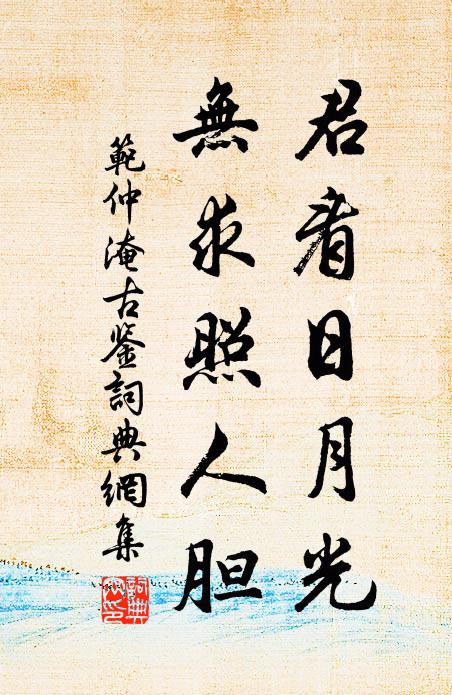 君看日月光
無求照人胆
範仲淹古鉴詞典網集